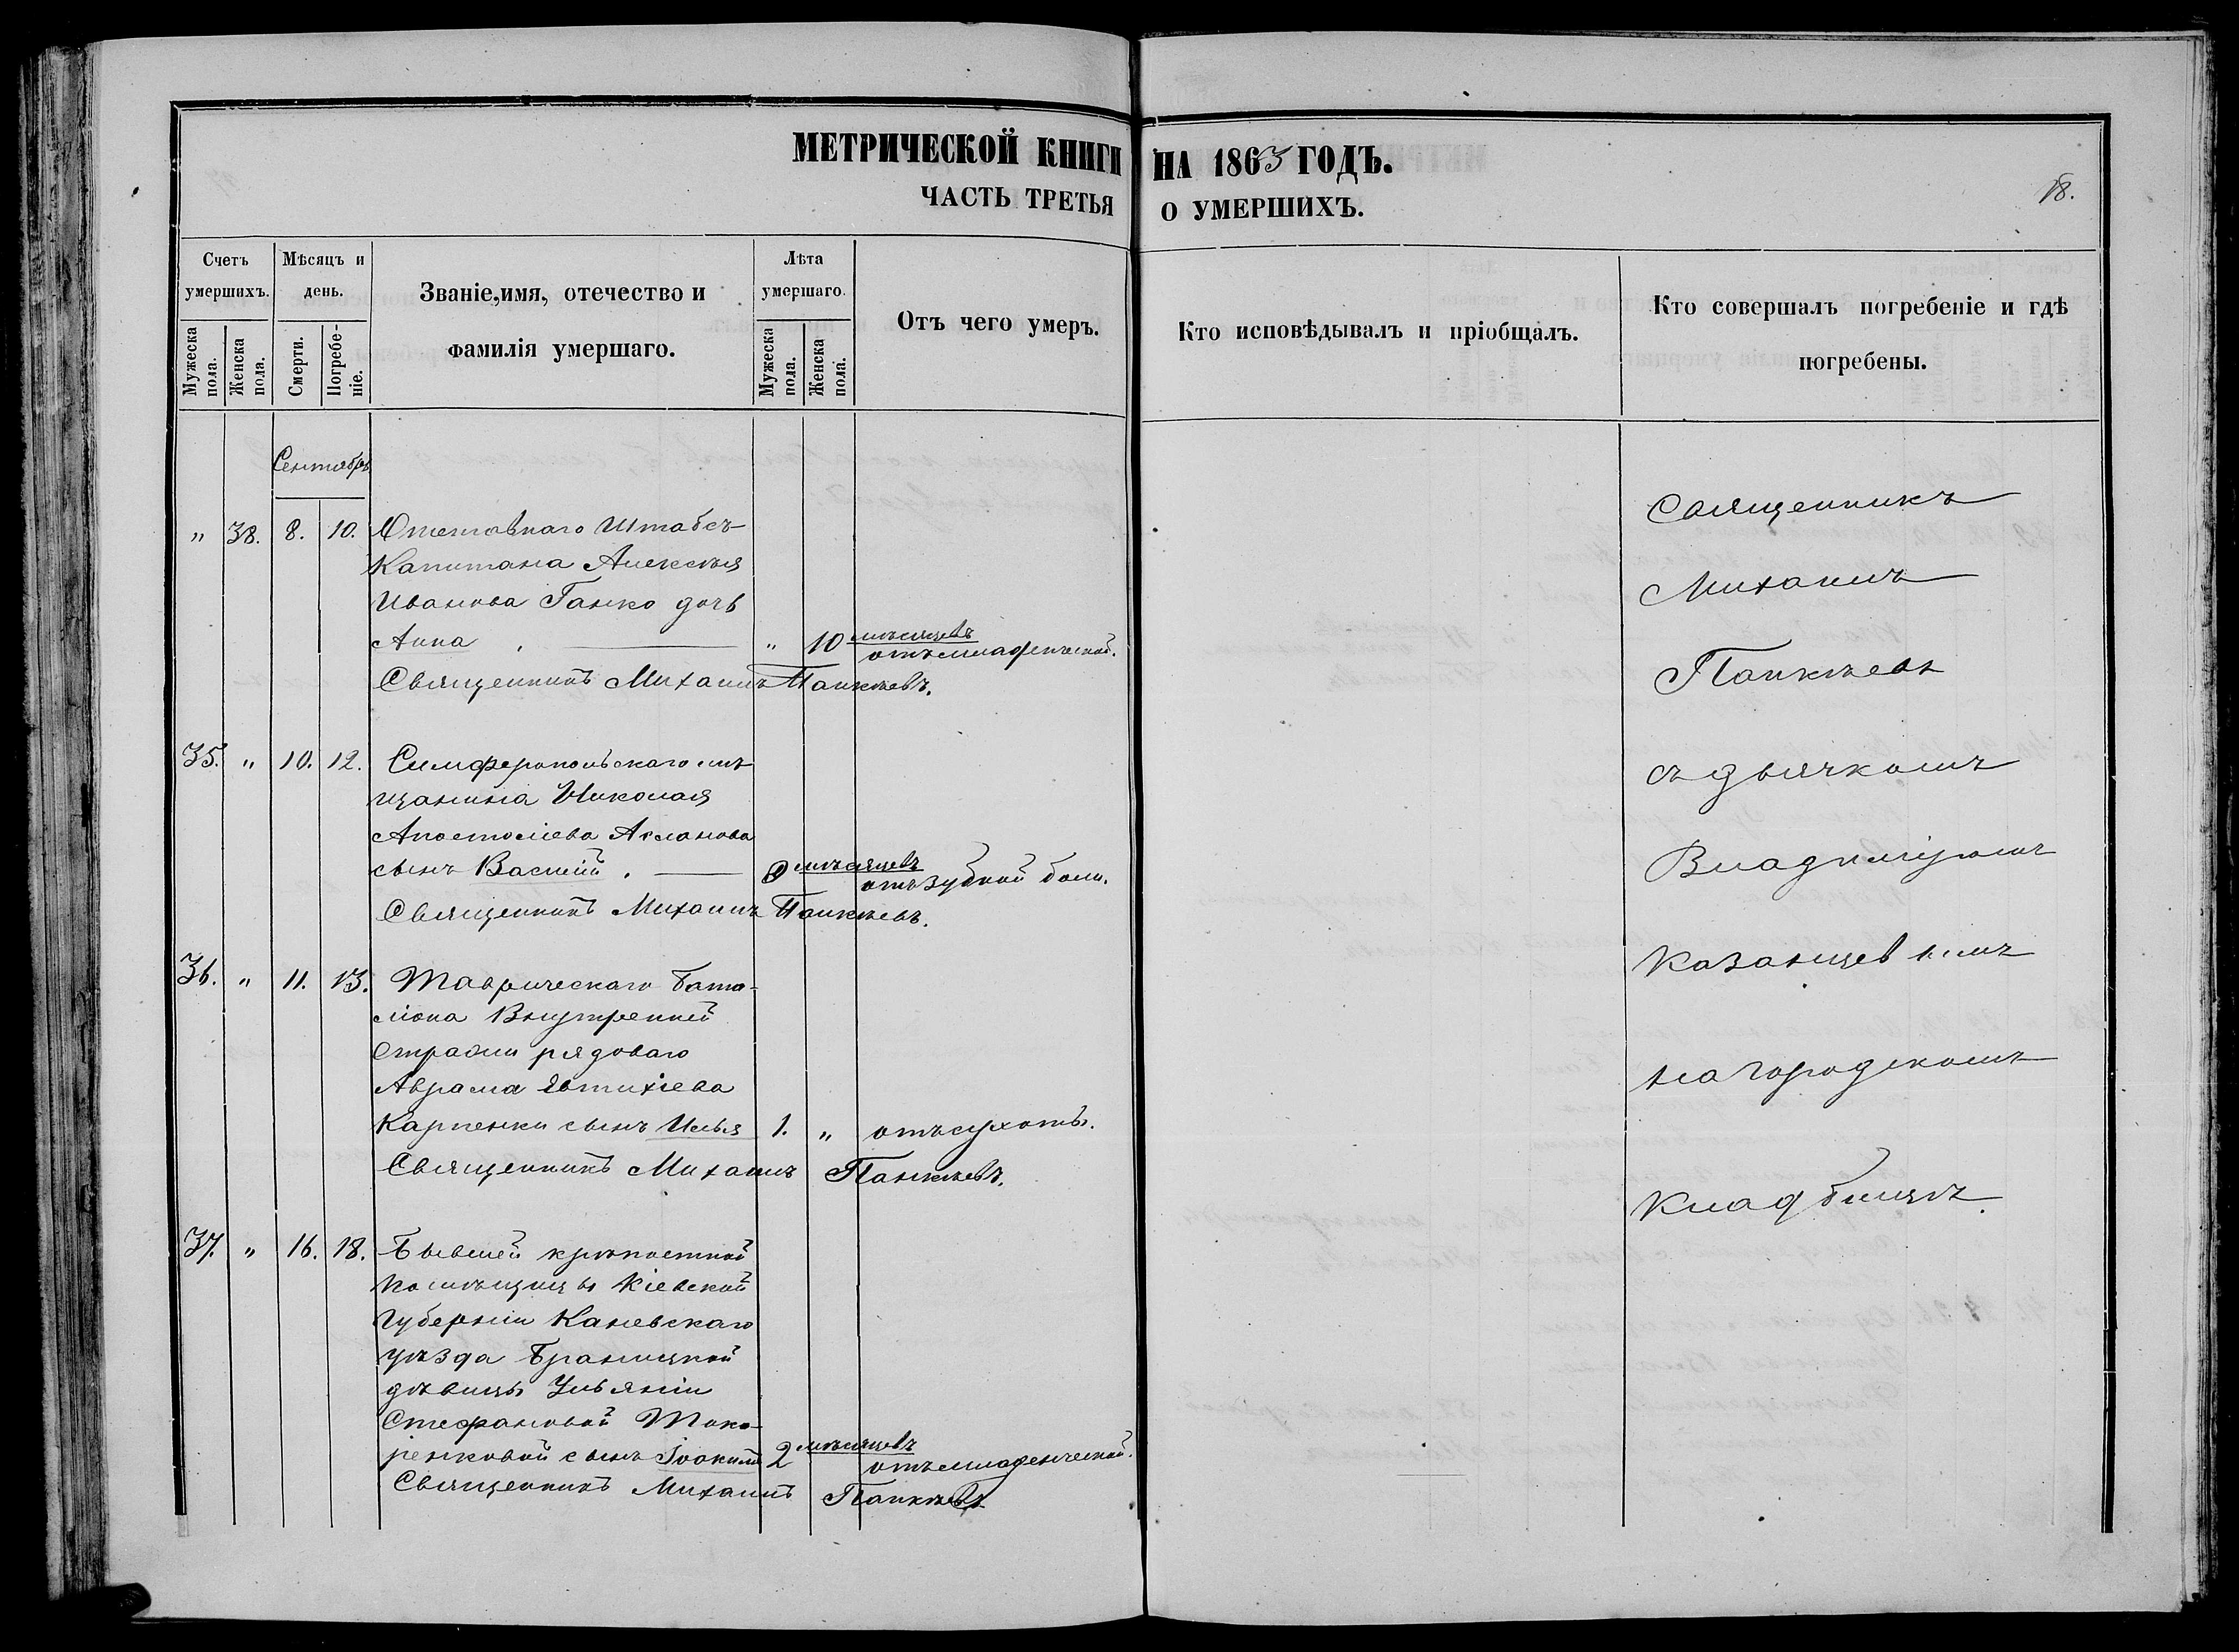 МЕТРИЧЕСКОЙ КНИГИ НА 1863 ГОДЪ.
ЧАСТЬ ТРЕТЬЯ О УМЕРШИХЪ.
18.
Счетъ умершихъ.
Мужеска пола.
Женска пола.
Мѣсяцъ и день.
Смерти.
Погребе-ніе.
Званіе, имя, отечество и
фамилія умершаго.
Лѣта умершаго.
Мужеска пола.
Женска пола.
Отъ чего умеръ.
Кто исповѣдывалъ и пріобщалъ.
Кто совершалъ погребеніе и гдѣ
погребены.
Сентябрь
" 38. 8. 10. Отставнаго Штабсъ-
Капитана Алексѣя
Иванова Ганко дочь
Анна " 10 мѣсяцевъ отъ младенческой.
Священникъ Михаилъ Панкѣевъ.
35. " 10. 12. Симферопольскаго мѣ
щанина Николая
Апостолiева Асланова
сынъ Василiй. мѣсяцевъ отъ зубной боли.
Священникъ Михаилъ Панкѣевъ.
36. " 11. 13. Таврическаго Бата-
лiона Внутренней
Стражи рядоваго
Аврама Евтихiева
Карпенки сынъ Илья 1. " отъ сухоты.
Священникъ Михаилъ Панкѣевъ.
37. " 16. 18. Бывшей крѣпостной
помѣщицы Кіевской
Губерніи Каневскаго
уѣзда Браницкой
дѣвицы Ульяніи
Стефановой Токо-
ренковой сынъ Іоакимъ 2 мѣсяцевъ отъ младенческой.
Священникъ Михаилъ Панкѣевъ
Священникъ
Михаилъ
Панкѣевъ
съ дьячкомъ
Владиміромъ
Казанцевымъ
на городскомъ
кладбищѣ.